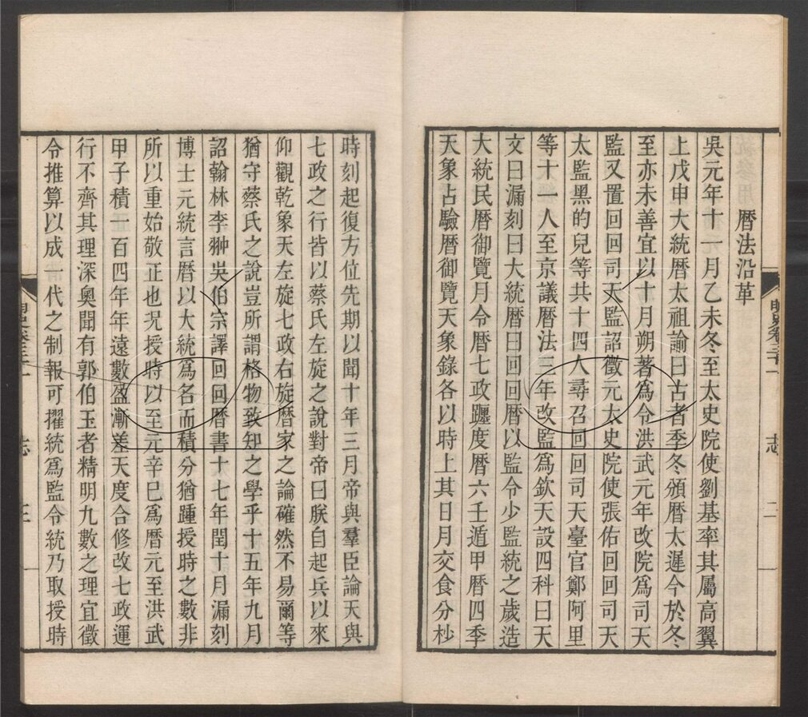 曆法沿革
吳元年十一月乙未冬至太史院使劉基率其屬高翼
上戊申大統曆太祖諭曰古者季冬頒曆太遲今於冬
至亦未善宜以十月朔著爲令洪武元年改院爲司天
監又置回回司天監詔徵元太史院使張佑回回司天
太監黑的兒等共十四人尋召回回司天臺官鄭阿里
等十一人至京議曆法三年改監爲欽天設四科曰天
文曰漏刻曰大統曆曰回回曆以監令少監統之歲造
大統民曆御覽月令曆七政躔度曆六壬遁甲曆四季
天象占驗曆御覽天象錄各以時上其日月交食分秒
時刻起復方位先期以聞十年三月帝與羣臣論天與
七政之行皆以蔡氏左旋之說對帝曰朕自起兵以來
仰觀乾象天左旋七政右旋曆家之論確然不易爾等
猶守蔡氏之說豈所謂格物致知之學乎十五年九月
詔翰林李翀吳伯宗譯回回曆書十七年閏十月漏刻
博士元統言曆以大統爲名而積分猶踵授時之數非
所以重始敬正也況授時以至元辛巳爲曆元至洪武
甲子積一百四年年遠數盈漸差天度合修改七政運
行不齊其理深奧聞有郭伯玉者精明九數之理宜徵
令推算以成一代之制報可擢統爲監令統乃取授時
明史卷三十一
志
二
明史卷三十一
志
三